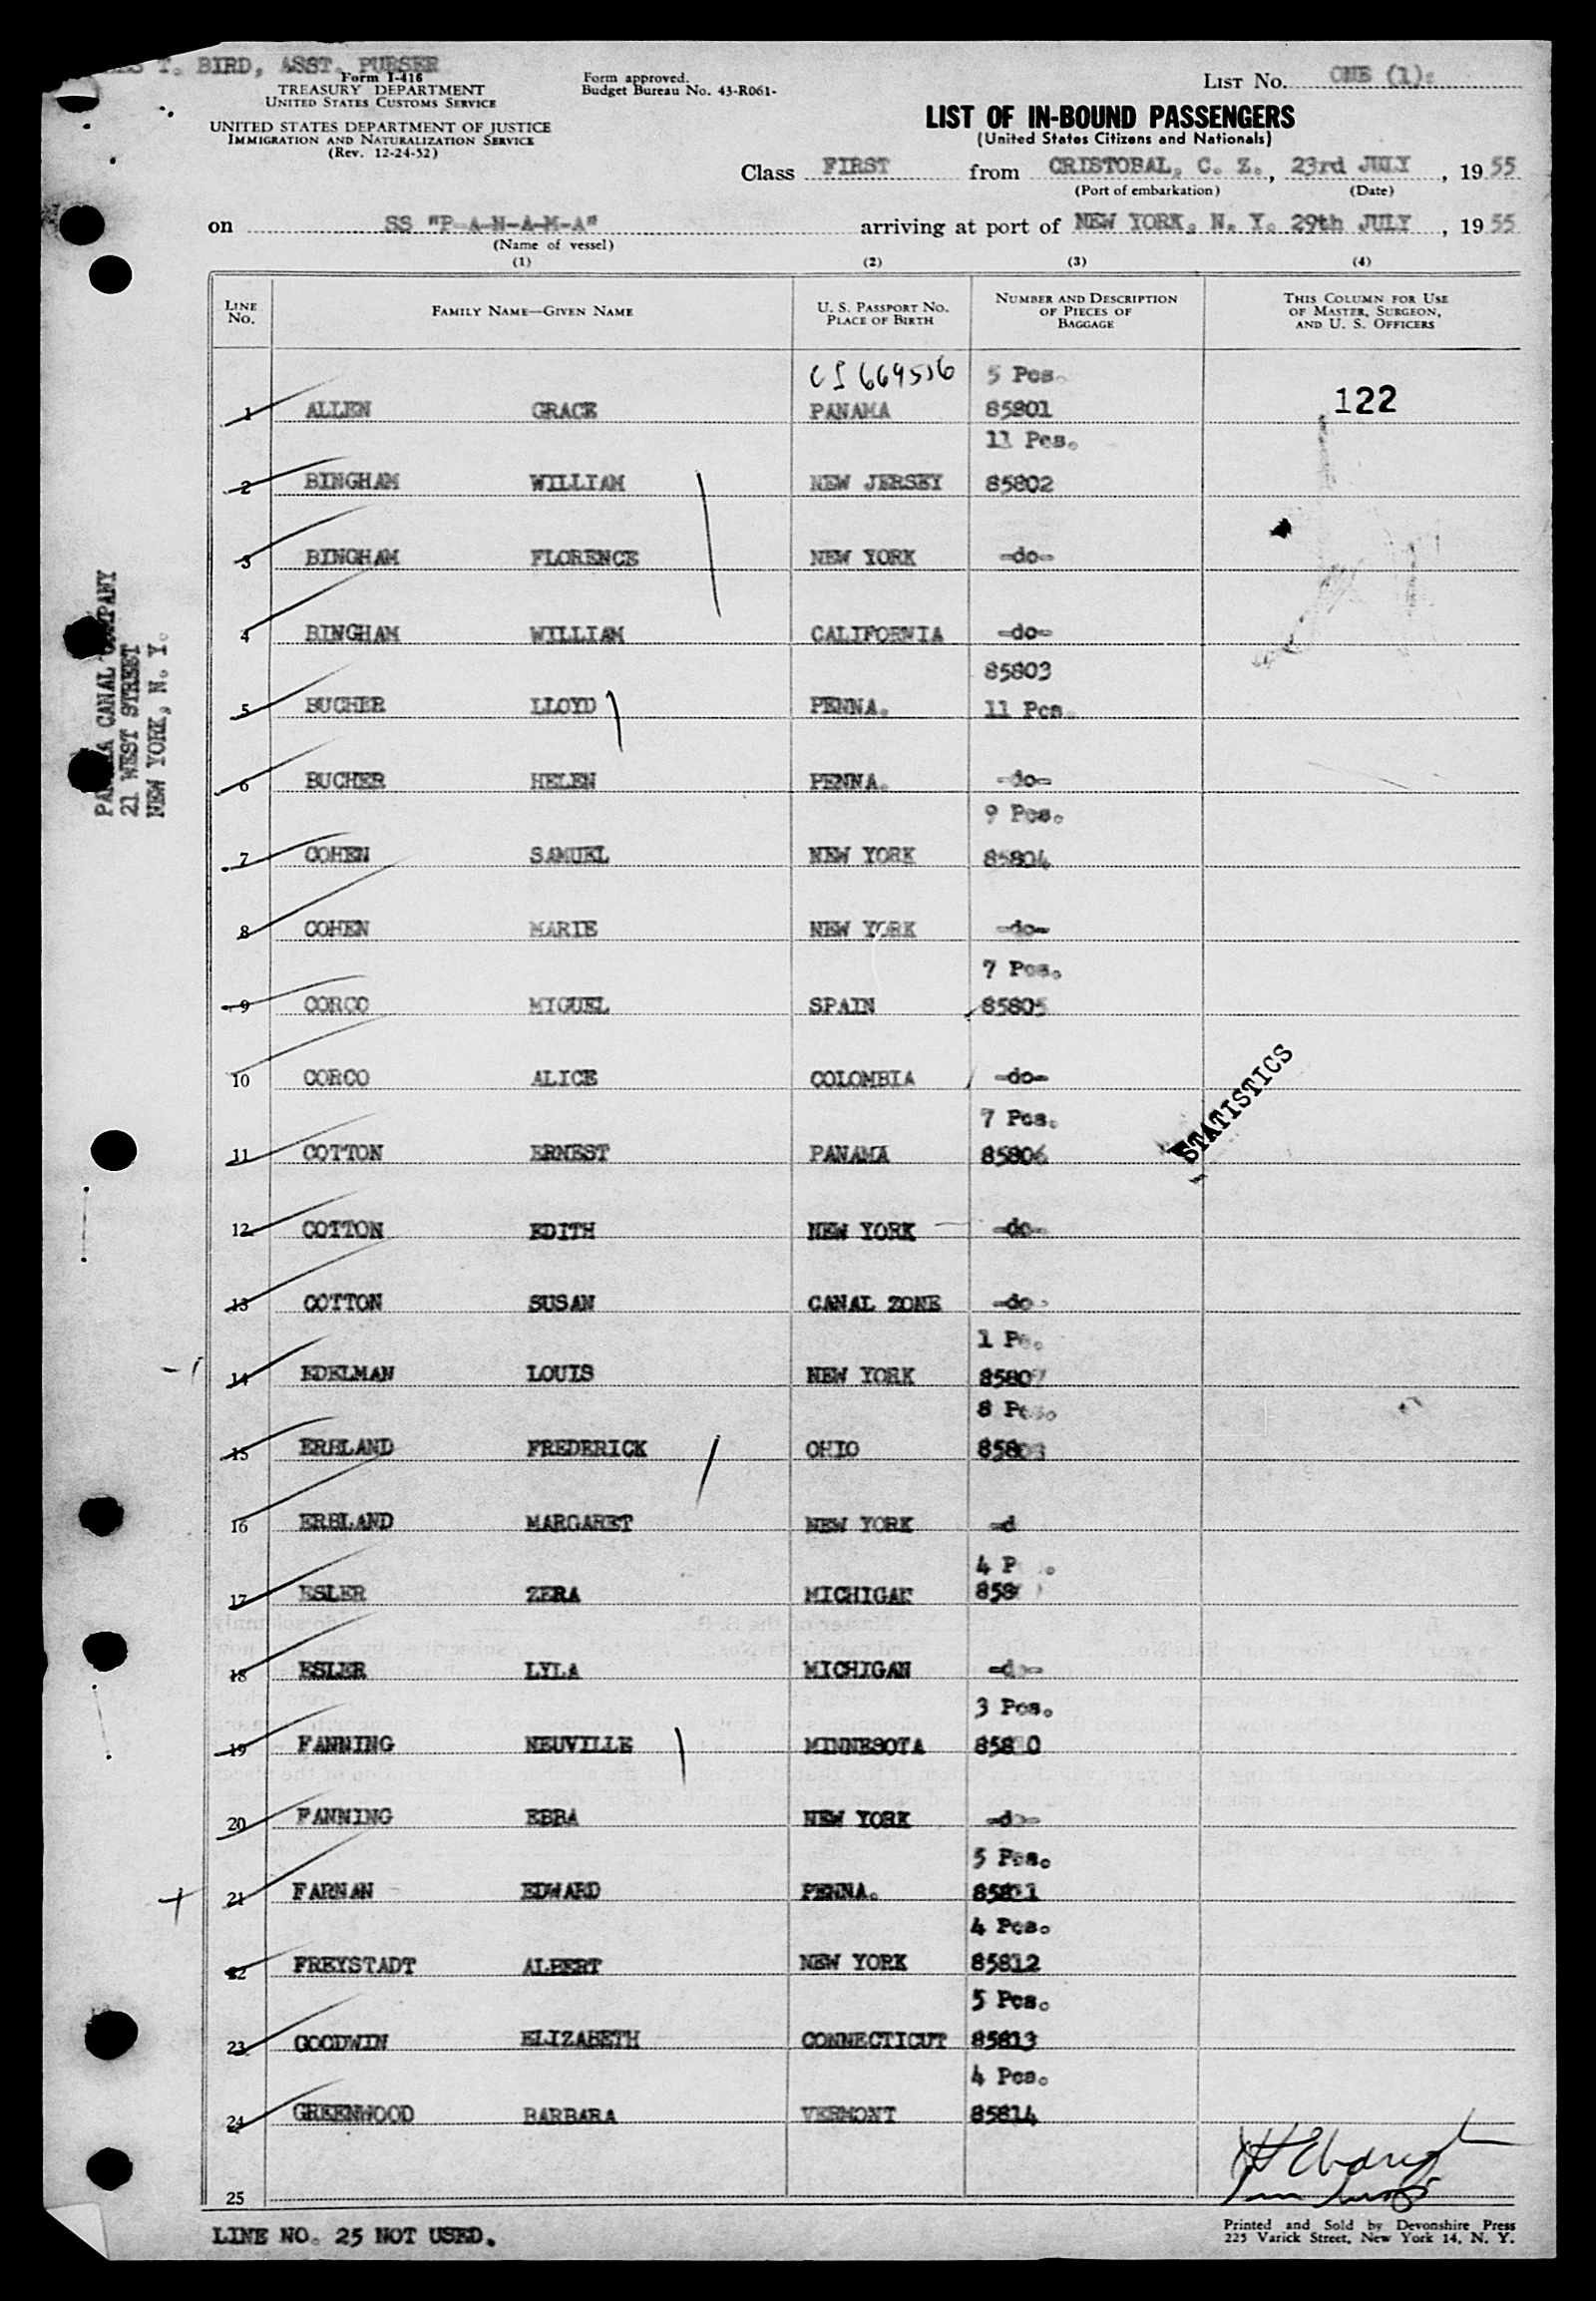 T. BIRD, ASST. PURSER
Form I-416
TREASURY DEPARTMENT
UNITED STATES CUSTOMS SERVICE
UNITED STATES DEPARTMENT OF JUSTICE
IMMIGRATION AND NATURALIZATION SERVICE
(Rev. 12-24-52)
Form approved.
Budget Bureau No. 43-R061-
LIST No. ONE (1):
LIST OF IN-BOUND PASSENGERS
(United States Citizens and Nationals)
Class FIRST from CRISTOBAL, C. Z., 23rd JULY, 19 55
(Port of embarkation) (Date)
on SS "P-A-N-A-M-A" arriving at port of NEW YORK, N. Y. 29th JULY, 19 55
(Name of vessel)
(1) (2) (3) (4)
LINE No. FAMILY NAME—GIVEN NAME U. S. PASSPORT No. PLACE OF BIRTH NUMBER AND DESCRIPTION OF PIECES OF BAGGAGE THIS COLUMN FOR USE OF MASTER, SURGEON, AND U. S. OFFICERS
5 Pcs.
1 ALLEN GRACE PANAMA 85801 122
11 Pcs.
2 BINGHAM WILLIAM NEW JERSEY 85802
3 BINGHAM FLORENCE NEW YORK -do-
4 BINGHAM WILLIAM CALIFORNIA -do-
85803
5 BUCHER LLOYD PENNA. 11 Pcs
6 BUCHER HELEN PENNA. -do-
9 Pcs.
7 COHEN SAMUEL NEW YORK 85804
8 COHEN MARIE NEW YORK -do-
7 Pcs.
9 CORCO MIGUEL SPAIN 85805
10 CORCO ALICE COLOMBIA -do-
7 Pcs.
11 COTTON ERNEST PANAMA 85806
STATISTICS
12 COTTON EDITH NEW YORK -do-
13 COTTON SUSAN CANAL ZONE -do-
1 Pc.
14 EDELMAN LOUIS NEW YORK 85807
8 Pcs.
15 ERBLAND FREDERICK OHIO 85808
16 ERBLAND MARGARET NEW YORK -d
4 P .
17 ESLER ZERA MICHIGAN 858
18 ESLER LYLA MICHIGAN -do-
3 Pcs.
19 FANNING NEUVILLE MINNESOTA 85810
20 FANNING EBBA NEW YORK -do-
5 Pcs.
21 FARNAN EDWARD PENNA. 85811
4 Pcs.
22 FREYSTADT ALBERT NEW YORK 85812
5 Pcs.
23 GOODWIN ELIZABETH CONNECTICUT 85813
4 Pcs.
24 GREENWOOD BARBARA VERMONT 85814
25
LINE NO. 25 NOT USED.
Printed and Sold by Devonshire Press
225 Varick Street, New York 14, N. Y.
CANAL COMPANY
21 WEST STREET
NEW YORK, N. Y.